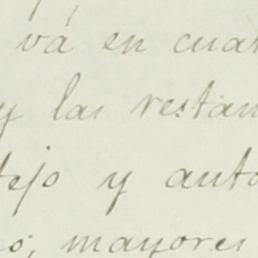 vá en cuat
y las restan
tejo y auto
os; mayores